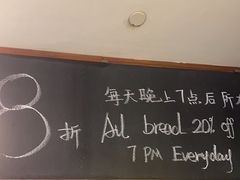 8折
每天晚上7点后所
All bread 20% off
7 PM Everyday